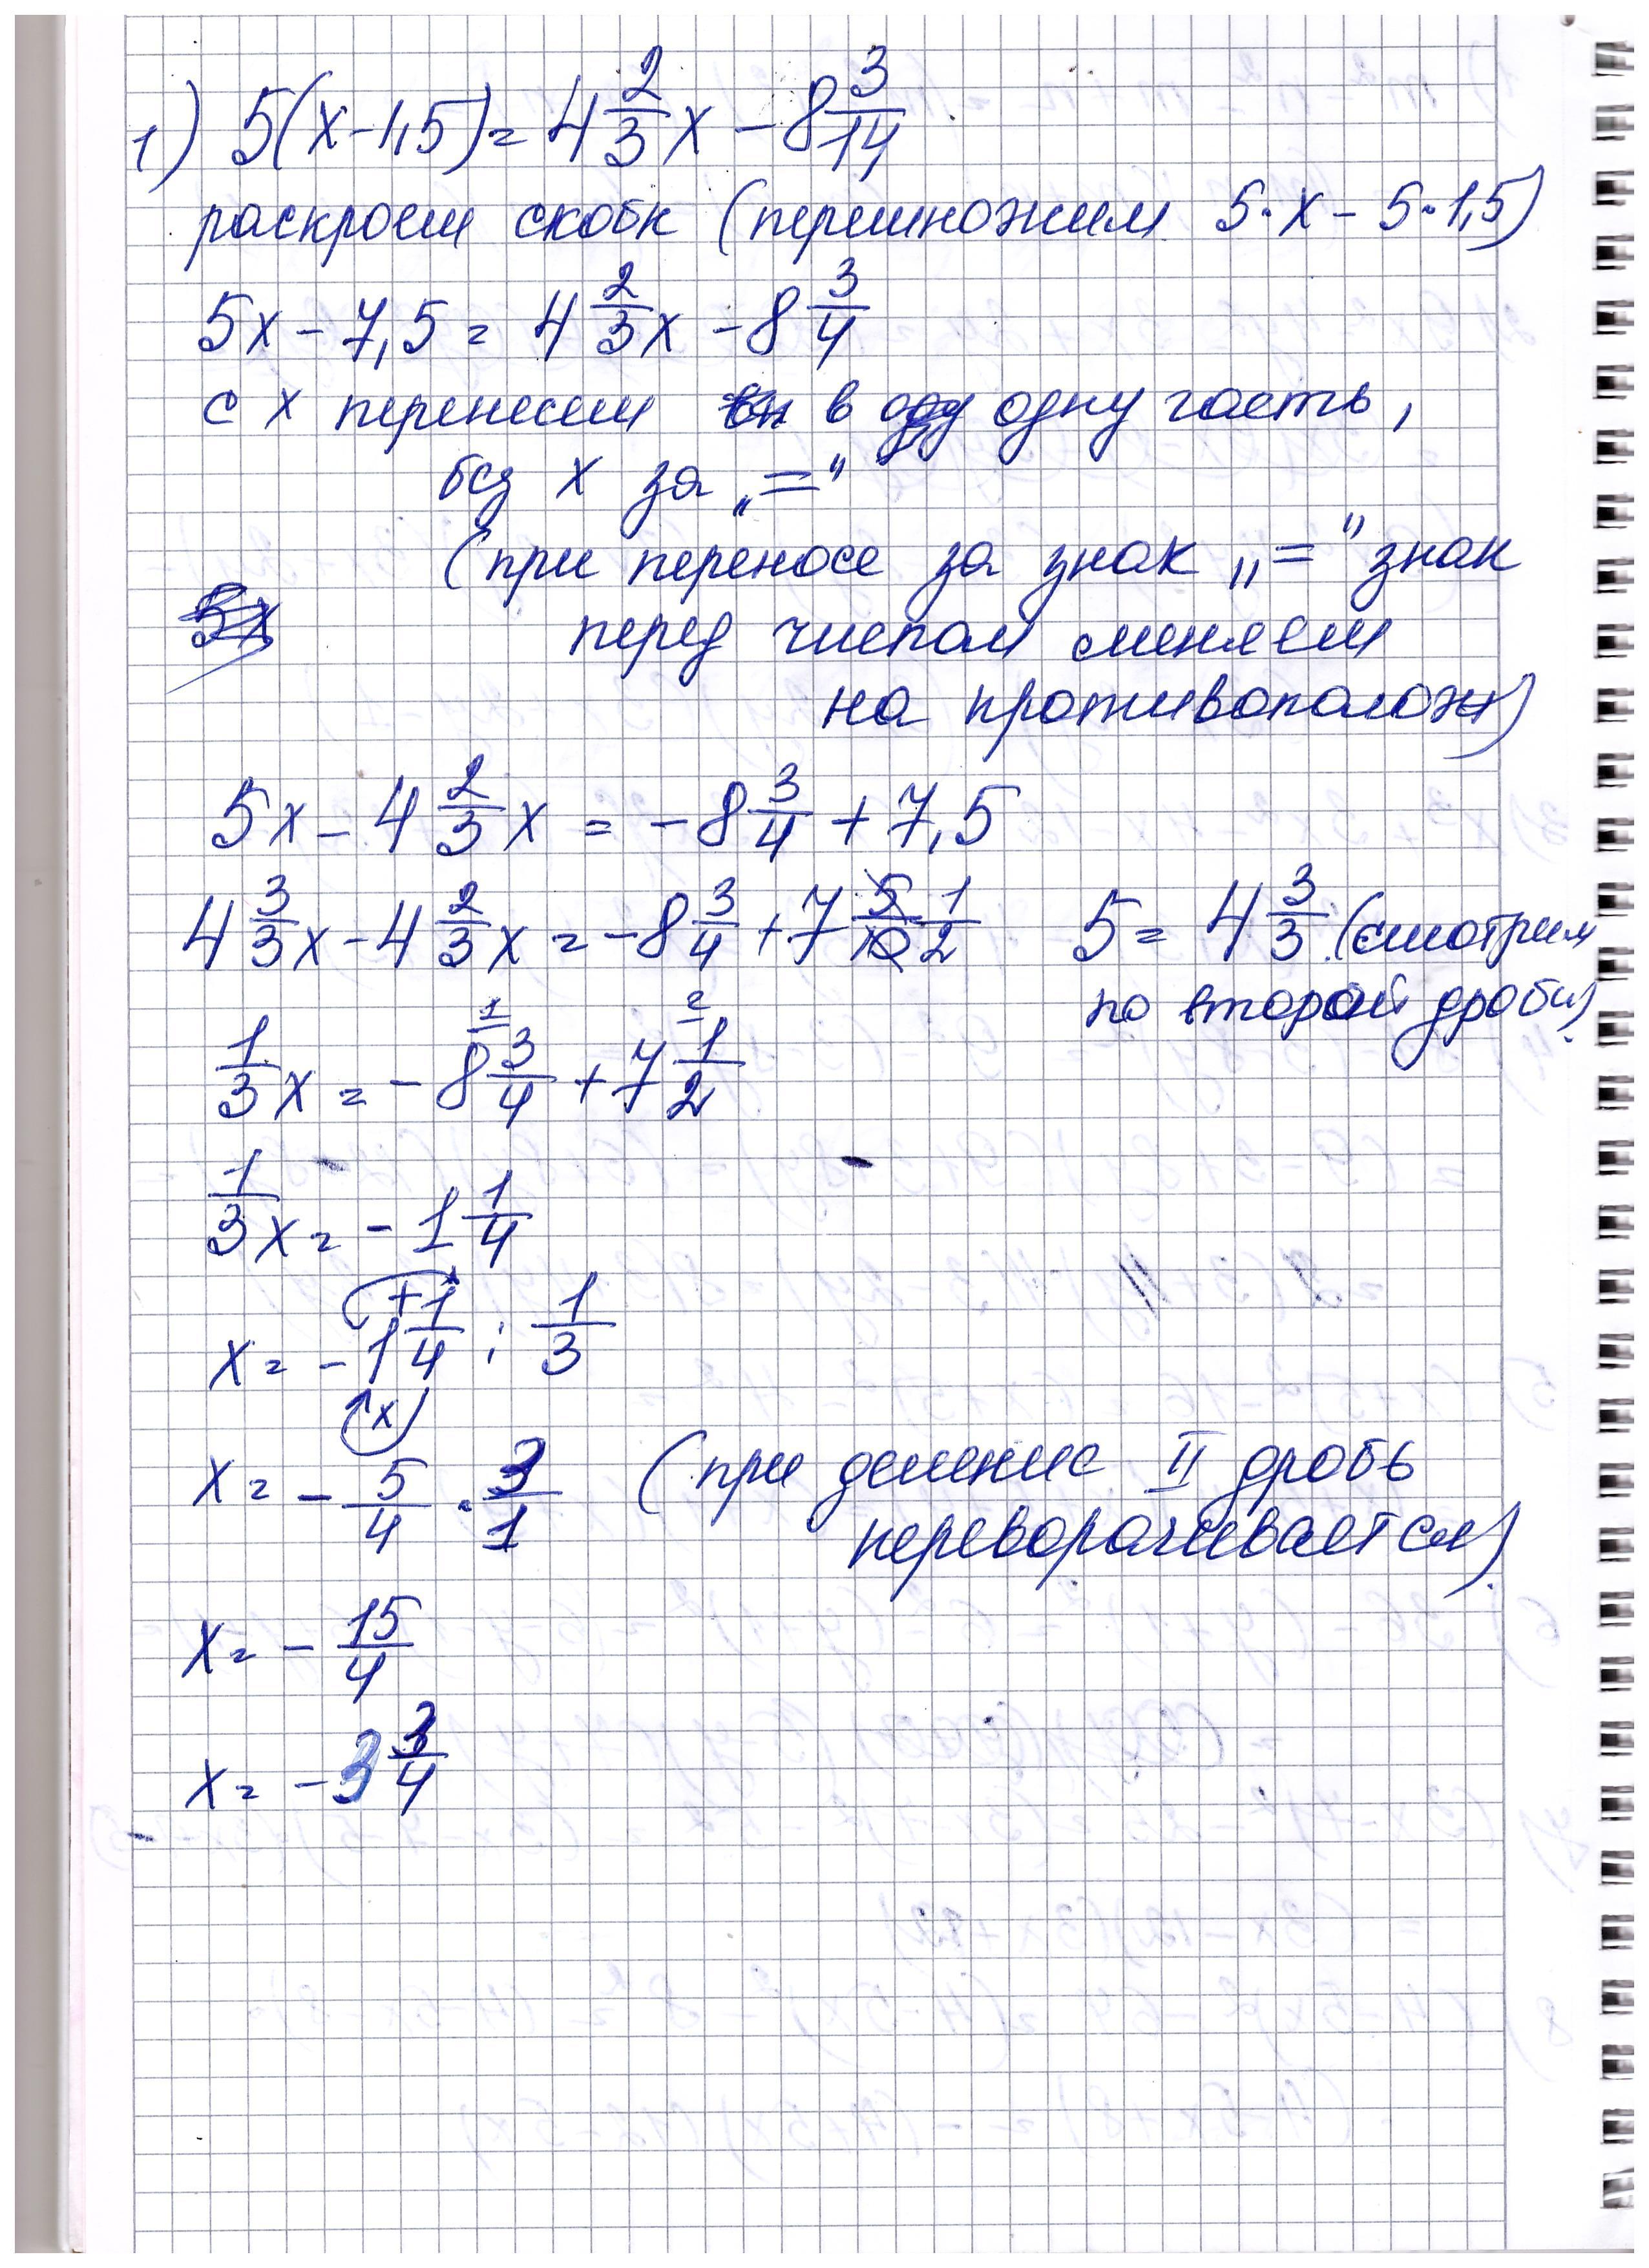 1) 5(x-1,5)= 4 2/3 x - 8 3/14
раскроем скобк (перемножим 5·x - 5·1,5)
5x - 7,5 = 4 2/3 x - 8 3/4
с x перенесем в одну часть,
без x за „="
(при переносе за знак „=" знак
перед числом меняем
на противополож)
5x - 4 2/3 x = - 8 3/4 + 7,5
4 3/3 x - 4 2/3 x = - 8 3/4 + 7 5/10 1/2 5 = 4 3/3 (смотрим
по второй дроби)
1 2
1/3 x = - 8 3/4 + 7 1/2
1/3 x = - 1 1/4
+
x = - 1 1/4 : 1/3
(x)
x = - 5/4 · 3/1 (при деление II дробь
переворачивается)
x = - 15/4
x = - 3 3/4